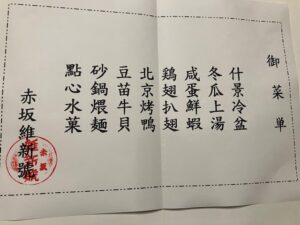 御菜単
什景冷盆
冬瓜上湯
咸蛋鮮蝦
鶏翅扒翅
北京烤鴨
豆苗牛貝
砂鍋煨麺
點心水菓
赤坂維新號